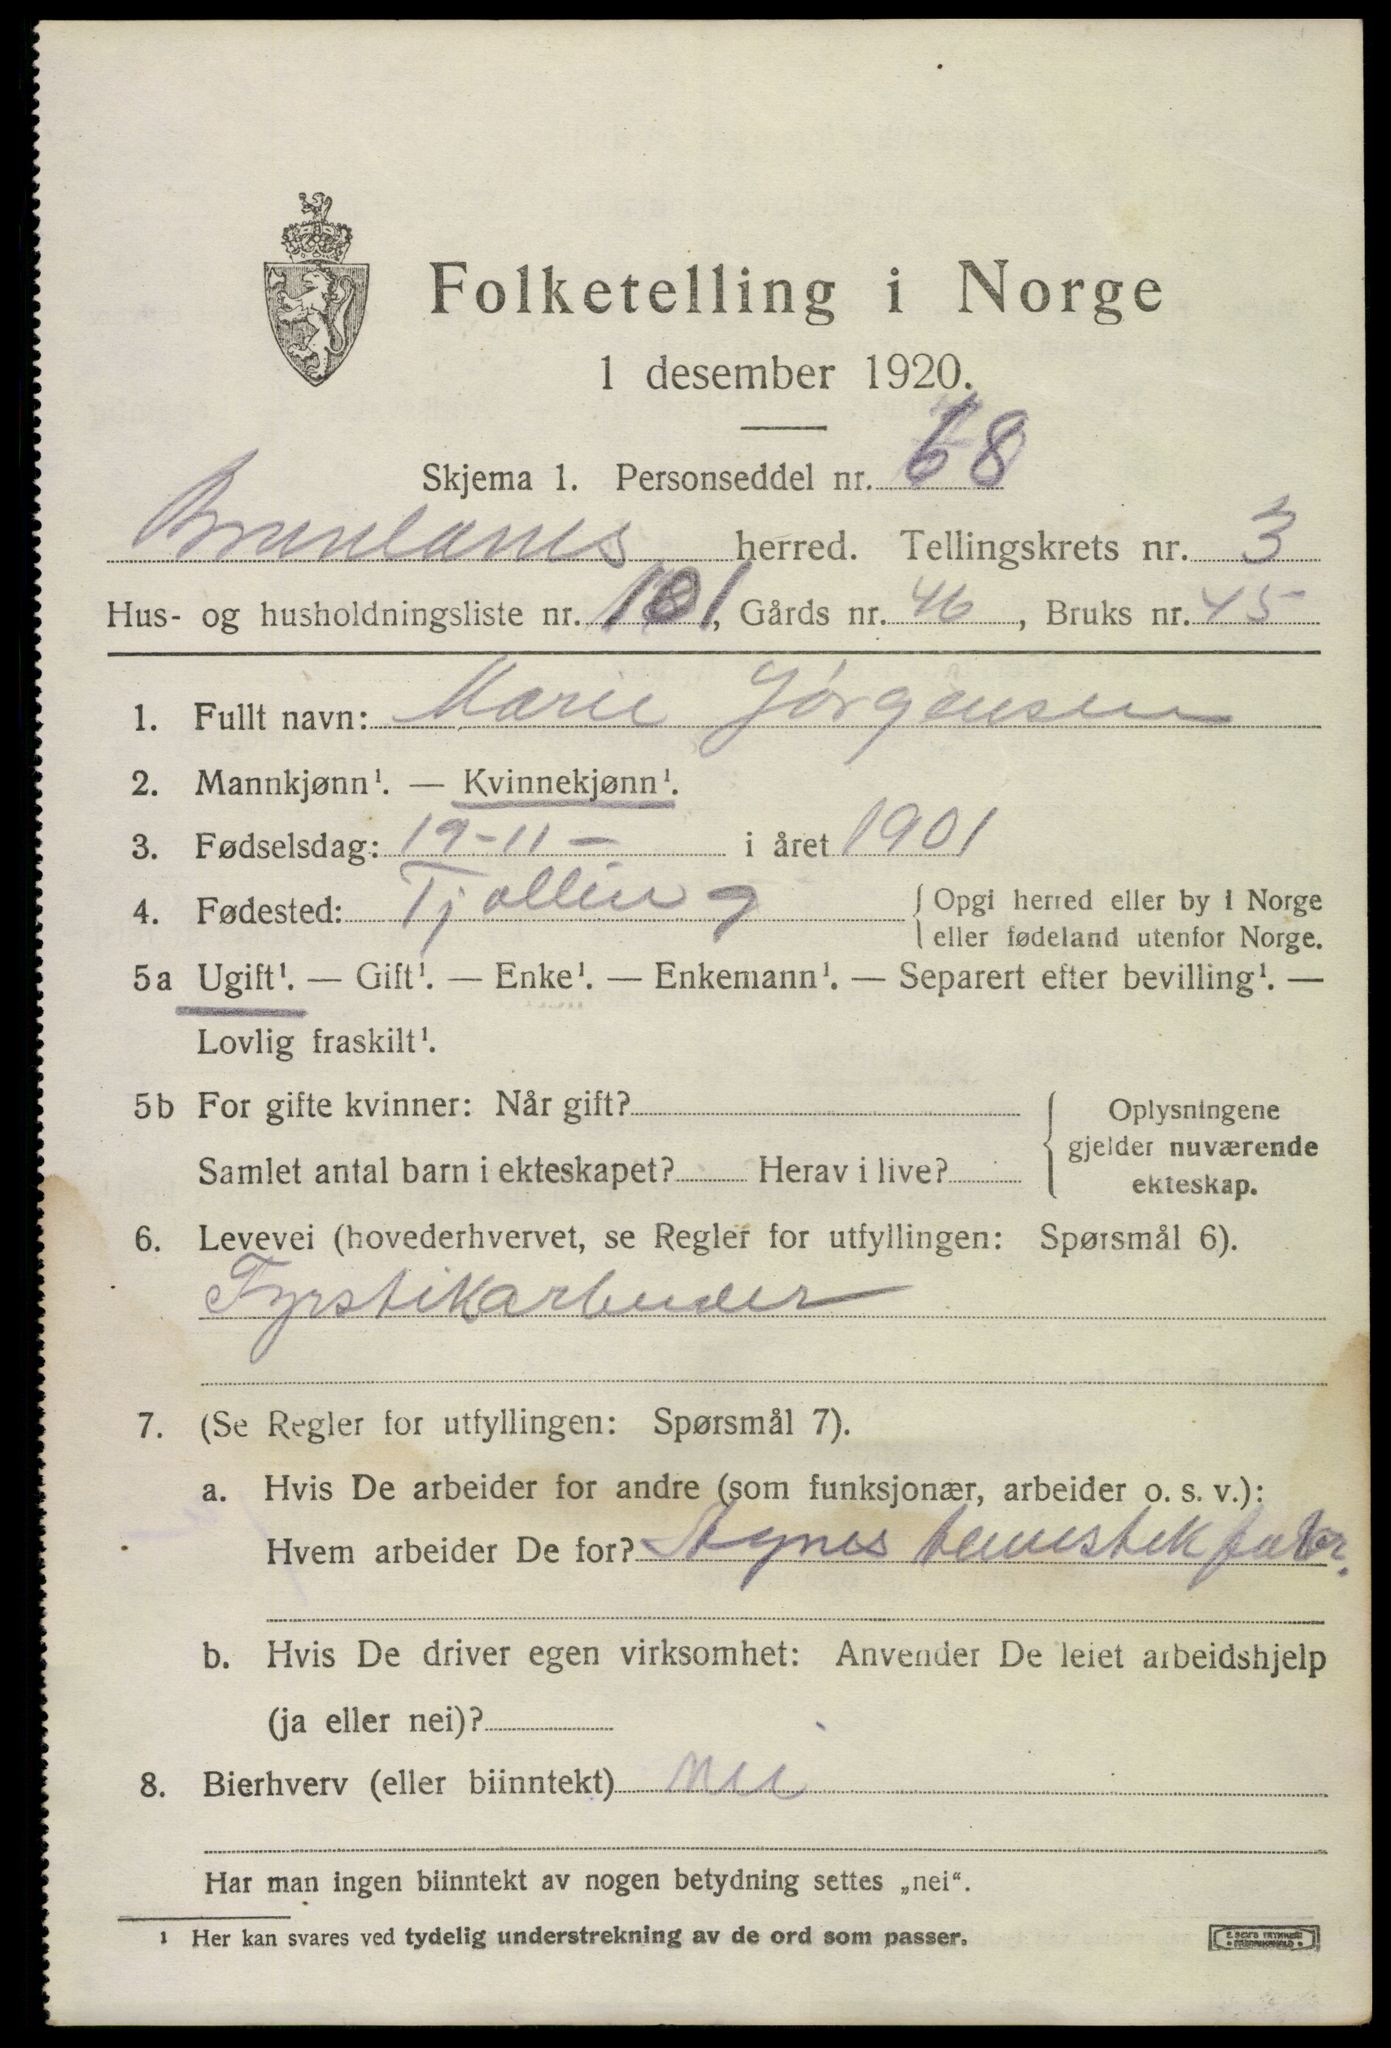 Folketelling i Norge
1 desember 1920.
Skjema 1. Personseddel nr. 68
Brunlanes herred. Tellingskrets nr. 3
Hus- og husholdningsliste nr. 101, Gårds nr. 46, Bruks nr. 45
1. Fullt navn: Marie Jørgensen
2. Mannkjønn¹. — Kvinnekjønn¹.
3. Fødselsdag: 19-11- i året 1901
4. Fødested: Tjølling { Opgi herred eller by i Norge
eller fødeland utenfor Norge.
5a Ugift¹. — Gift¹. — Enke¹. — Enkemann¹. — Separert efter bevilling¹. —
Lovlig fraskilt¹.
5b For gifte kvinner: Når gift?
Samlet antal barn i ekteskapet? Herav i live?
{ Oplysningene
gjelder nuværende
ekteskap.
6. Levevei (hovederhvervet, se Regler for utfyllingen: Spørsmål 6).
Fyrstikarbeider
7. (Se Regler for utfyllingen: Spørsmål 7).
a. Hvis De arbeider for andre (som funksjonær, arbeider o. s. v.):
Hvem arbeider De for? Agnes tenstikfabr.
b. Hvis De driver egen virksomhet: Anvender De leiet arbeidshjelp
(ja eller nei)?
8. Bierhverv (eller biinntekt) nei
Har man ingen biinntekt av nogen betydning settes „nei“.
¹ Her kan svares ved tydelig understrekning av de ord som passer.